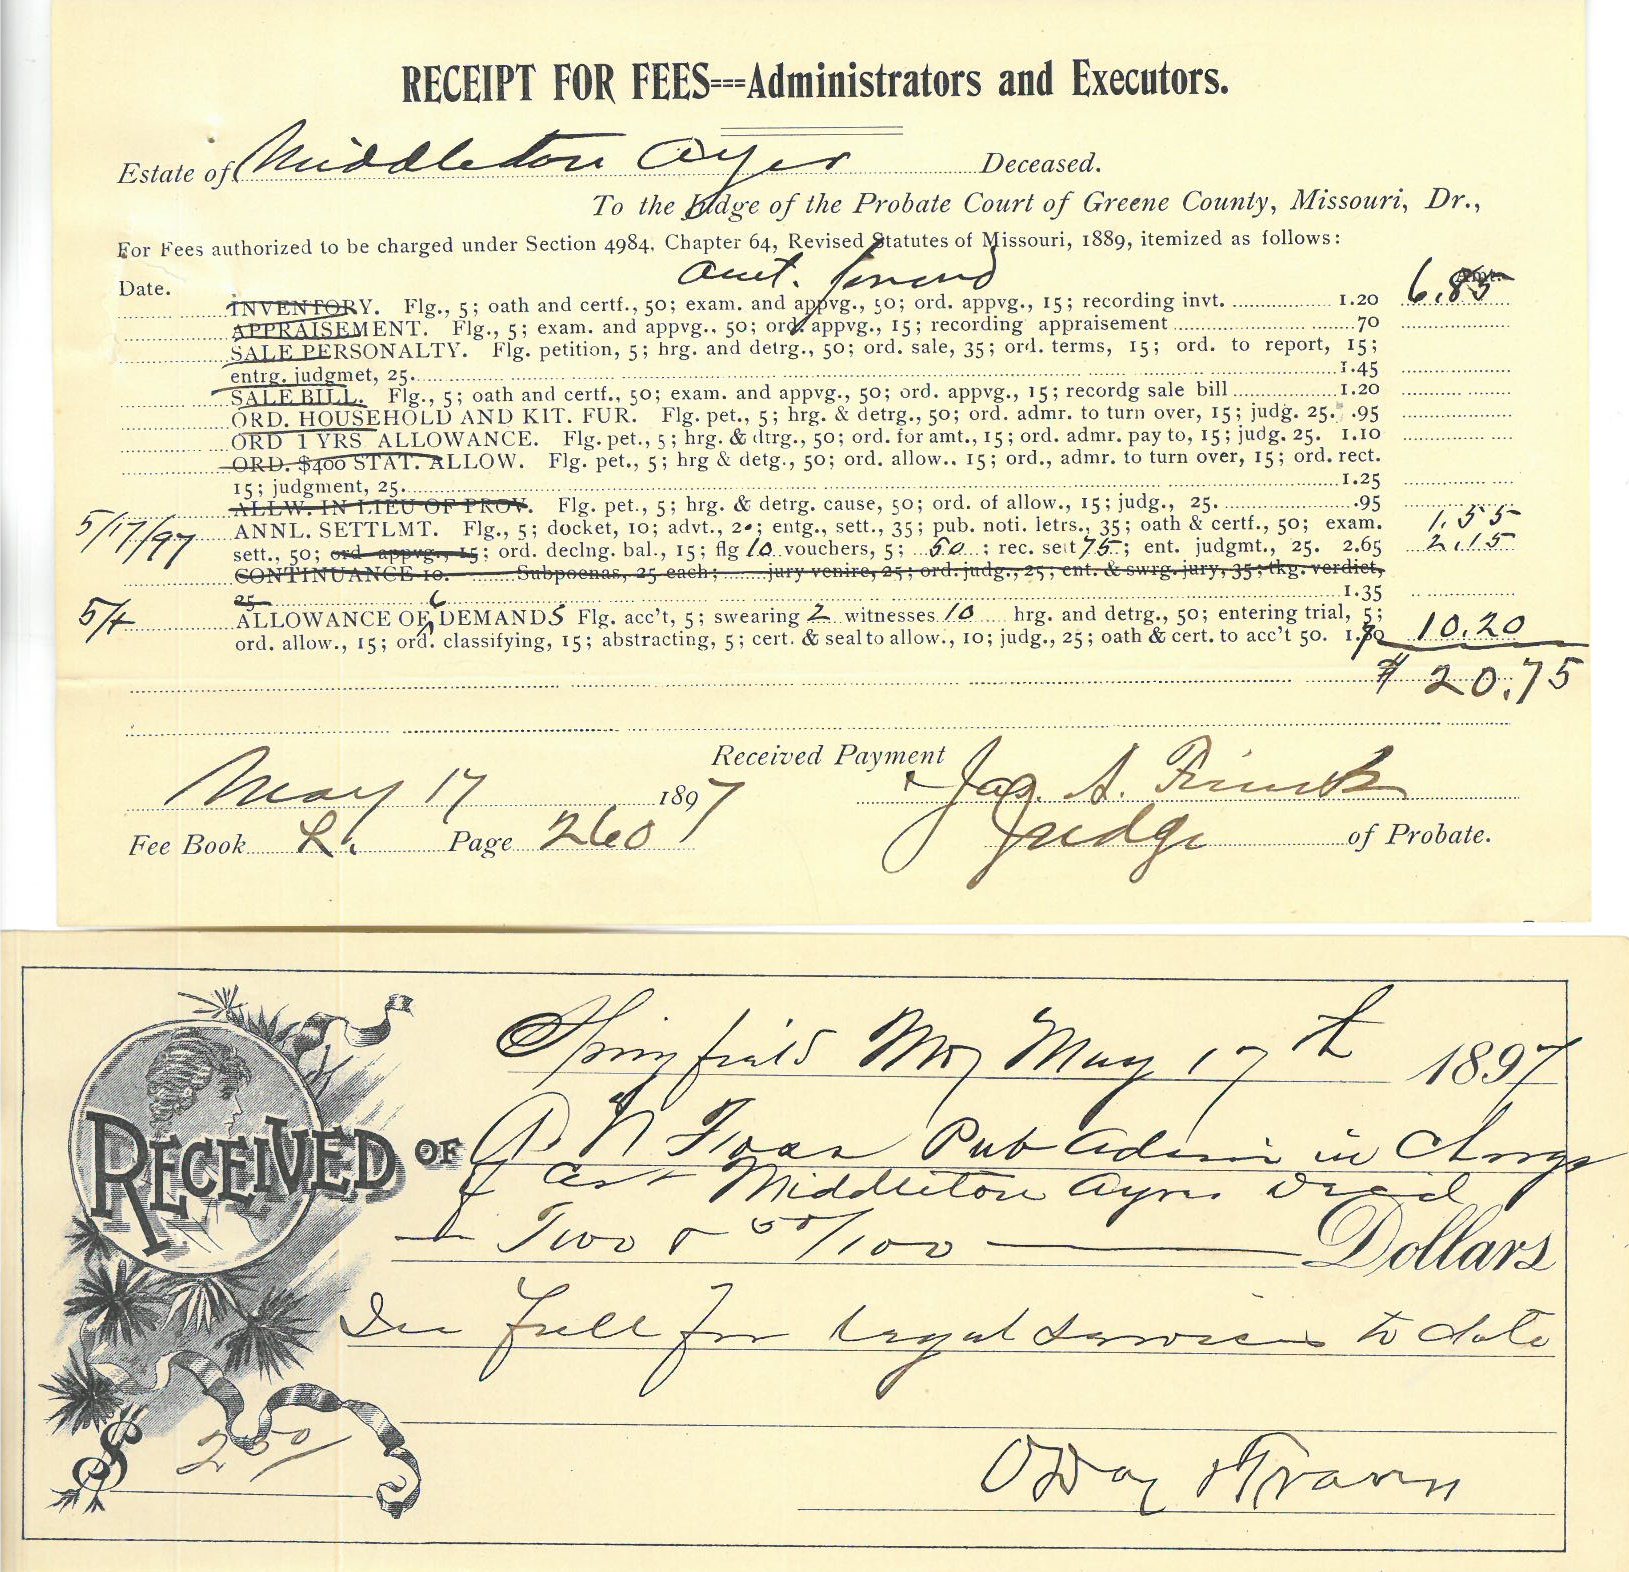 RECEIPT FOR FEES===Administrators and Executors.
Estate of Middleton Ayer Deceased.
To the Judge of the Probate Court of Greene County, Missouri, Dr.,
For Fees authorized to be charged under Section 4984, Chapter 64, Revised Statutes of Missouri, 1889, itemized as follows:
Amt. forward
Date. Amt. 6.85
INVENTORY. Flg., 5; oath and certf., 50; exam. and appvg., 50; ord. appvg., 15; recording invt. 1.20
APPRAISEMENT. Flg., 5; exam. and appvg., 50; ord. appvg., 15; recording appraisement 70
SALE PERSONALTY. Flg. petition, 5; hrg. and detrg., 50; ord. sale, 35; ord. terms, 15; ord. to report, 15;
entrg. judgmet, 25. 1.45
SALE BILL. Flg., 5; oath and certf., 50; exam. and appvg., 50; ord. appvg., 15; recordg sale bill 1.20
ORD. HOUSEHOLD AND KIT. FUR. Flg. pet., 5; hrg. & detrg., 50; ord. admr. to turn over, 15; judg. 25. .95
ORD 1 YRS ALLOWANCE. Flg. pet., 5; hrg. & dtrg., 50; ord. for amt., 15; ord. admr. pay to, 15; judg. 25. 1.10
ORD. $400 STAT. ALLOW. Flg. pet., 5; hrg & detg., 50; ord. allow.. 15; ord., admr. to turn over, 15; ord. rect.
15; judgment, 25. 1.25
ALLW. IN LIEU OF PROV. Flg. pet., 5; hrg. & detrg. cause, 50; ord. of allow., 15; judg., 25. .95
5/17/97 ANNL. SETTLMT. Flg., 5; docket, 10; advt., 20; entg., sett., 35; pub. noti. letrs., 35; oath & certf., 50; exam. 1.55
sett., 50; ord. appvg., 15; ord. declng. bal., 15; flg 10 vouchers, 5; 50; rec. sett 75; ent. judgmt., 25. 2.65 2.15
CONTINUANCE 10. Subpoenas, 25 each; jury venire, 25; ord. judg., 25; ent. & swrg. jury, 35; tkg. verdict,
25 1.35
5/4 ALLOWANCE OF 6 DEMANDS Flg. acc't, 5; swearing 2 witnesses 10 hrg. and detrg., 50; entering trial, 5;
ord. allow., 15; ord. classifying, 15; abstracting, 5; cert. & seal to allow., 10; judg., 25; oath & cert. to acc't 50. 1.70 10.20
$ 20.75
Received Payment
May 17 1897 Jas. A.
Fee Book R. Page 260 Judge of Probate.
Springfield Mo May 17th 1897
RECEIVED OF Pub Admin in Charge
of Est Middleton Ayres Decd
Two & 50/100 Dollars
In full for legal services to date
$ 2 50/
O'Day & Travers